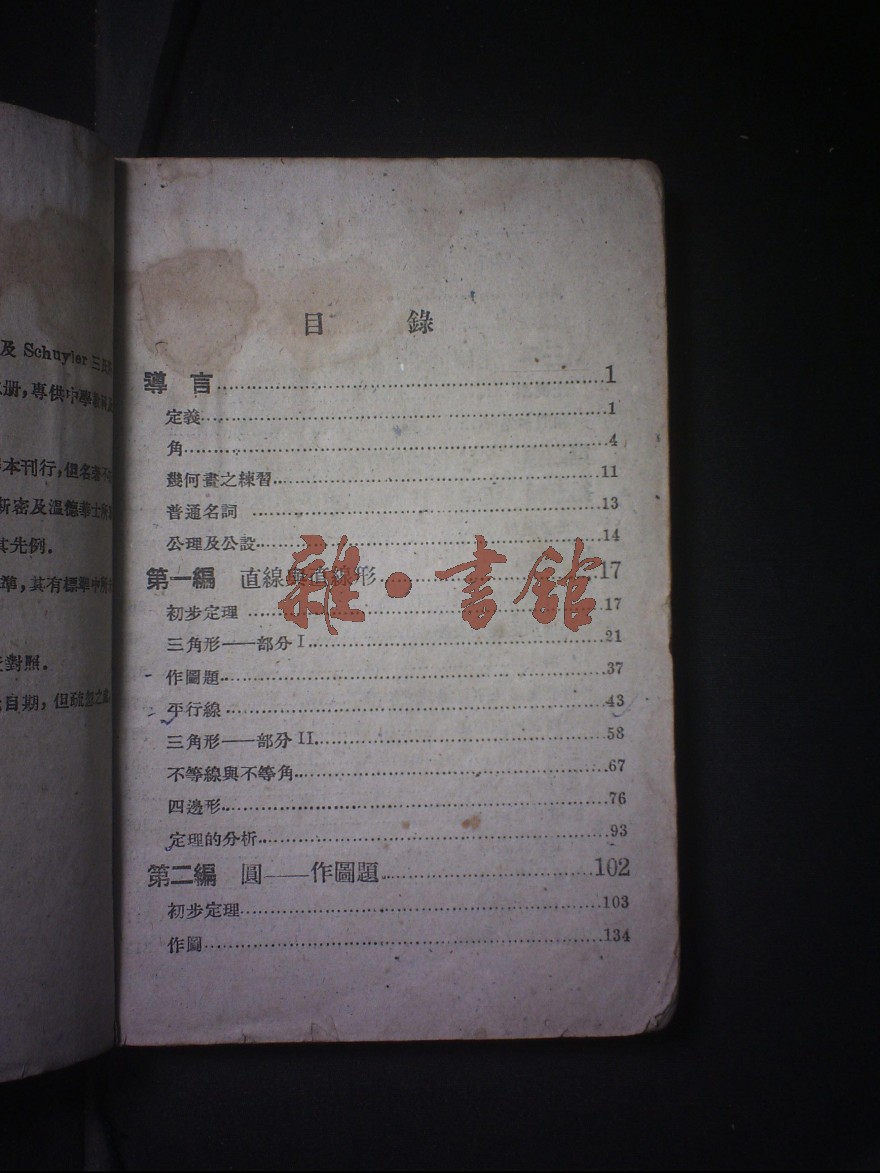 及 Schuyler 三氏
册，專供中學
本刊行，但名著不
新密及溫德華士所
其先例．
準，其有標準中所
對照．
自期，但
目 錄
導 言……1
定義……1
角……4
幾何畫之練習……11
普通名詞……13
公理及公設……14
第一編 直線與直線形……17
初步定理……17
三角形——部分 I……21
作圖題……37
平行線……43
三角形——部分 II……58
不等線與不等角……67
四邊形……76
定理的分析……93
第二編 圓——作圖題……102
初步定理……103
作圖……134
雜·書館